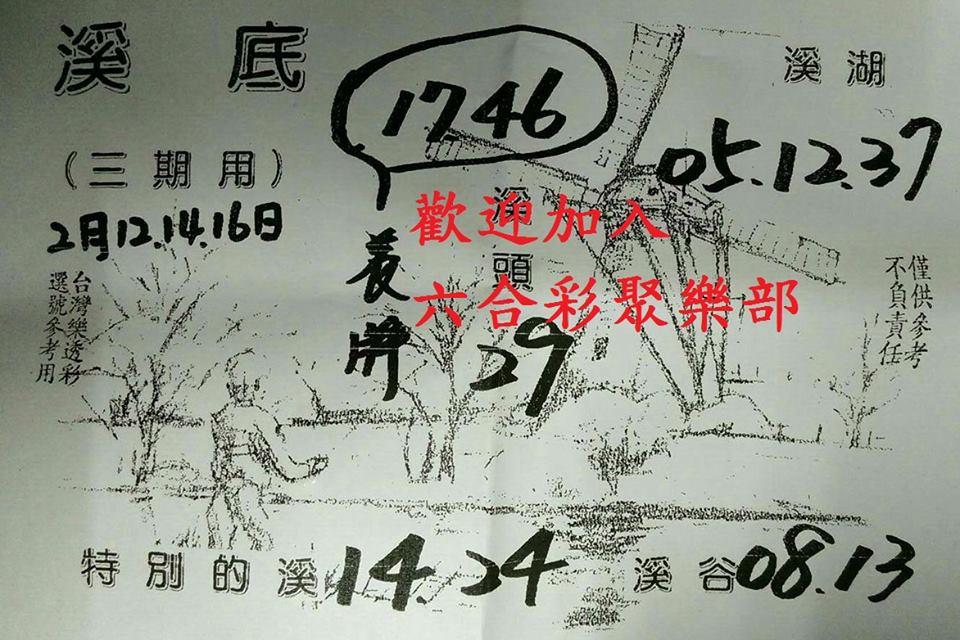 溪底
1746
溪湖
05.12.37
(三期用)
2月12.14.16日
溪頭
歡迎加入
六合彩聚樂部
29
台灣樂透彩
選號參考用
僅供參考
不負責任
特別的溪 14.24
溪谷 08.13